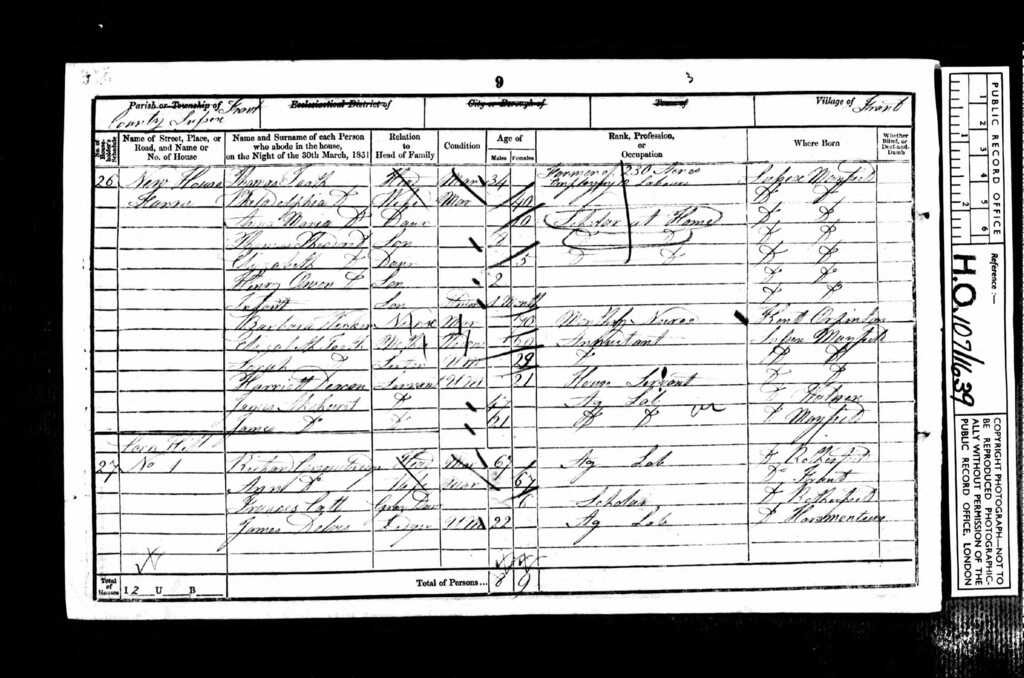 9 3
Parish or Township of Frant Ecclesiastical District of City or Borough of Town of Village of Frant
County Sussex
No. of House-holder's Schedule Name of Street, Place, or Road, and Name or No. of House Name and Surname of each Person who abode in the house, on the Night of the 30th March, 1851 Relation to Head of Family Condition Age of Males Females Rank, Profession, or Occupation Where Born Whether Blind, or Deaf-and-Dumb
26 New House Thomas Head Mar 34 Farmer of 230 Acres Sussex Mayfield
Employing Labourers
Farm Philadelphia Do Wife Mar 40 Do Do
Maria Do Daur 10 Scholar at Home Do Do
Thomas Do Son 7 Do Do
Elizabeth Do Daur 5 Do Do Do Do
Henry Owen Do Son 2 Do Do
Infant Son 1 Month Do Do
Barbara Nurse Mar 50 Monthly Nurse Kent Orpington
Elizabeth Moth Annuitant Sussex Mayfield
Sarah Do Sister Un 29 Do Do Do
Harriett Servant Un 21 House Servant Do Do
James Do Ag Lab Do
James Do Do 21 Do Do Do Mayfield
27 No 1 Richard Head Mar 67 Ag Lab Do Rotherfield
Ann Do Wife Mar 67 Do Frant
Frances Catt Gran Daur 6 Scholar Do Rotherfield
James Lodger Un 22 Ag Lab Do Hurstmonceux
Total of Houses 1 2 U B Total of Persons... 8 9
PUBLIC RECORD OFFICE
1 2 3 4 5 6
1 2
Reference :—
H.O. 107/1639
COPYRIGHT PHOTOGRAPH—NOT TO BE REPRODUCED PHOTOGRAPHICALLY WITHOUT PERMISSION OF THE PUBLIC RECORD OFFICE, LONDON